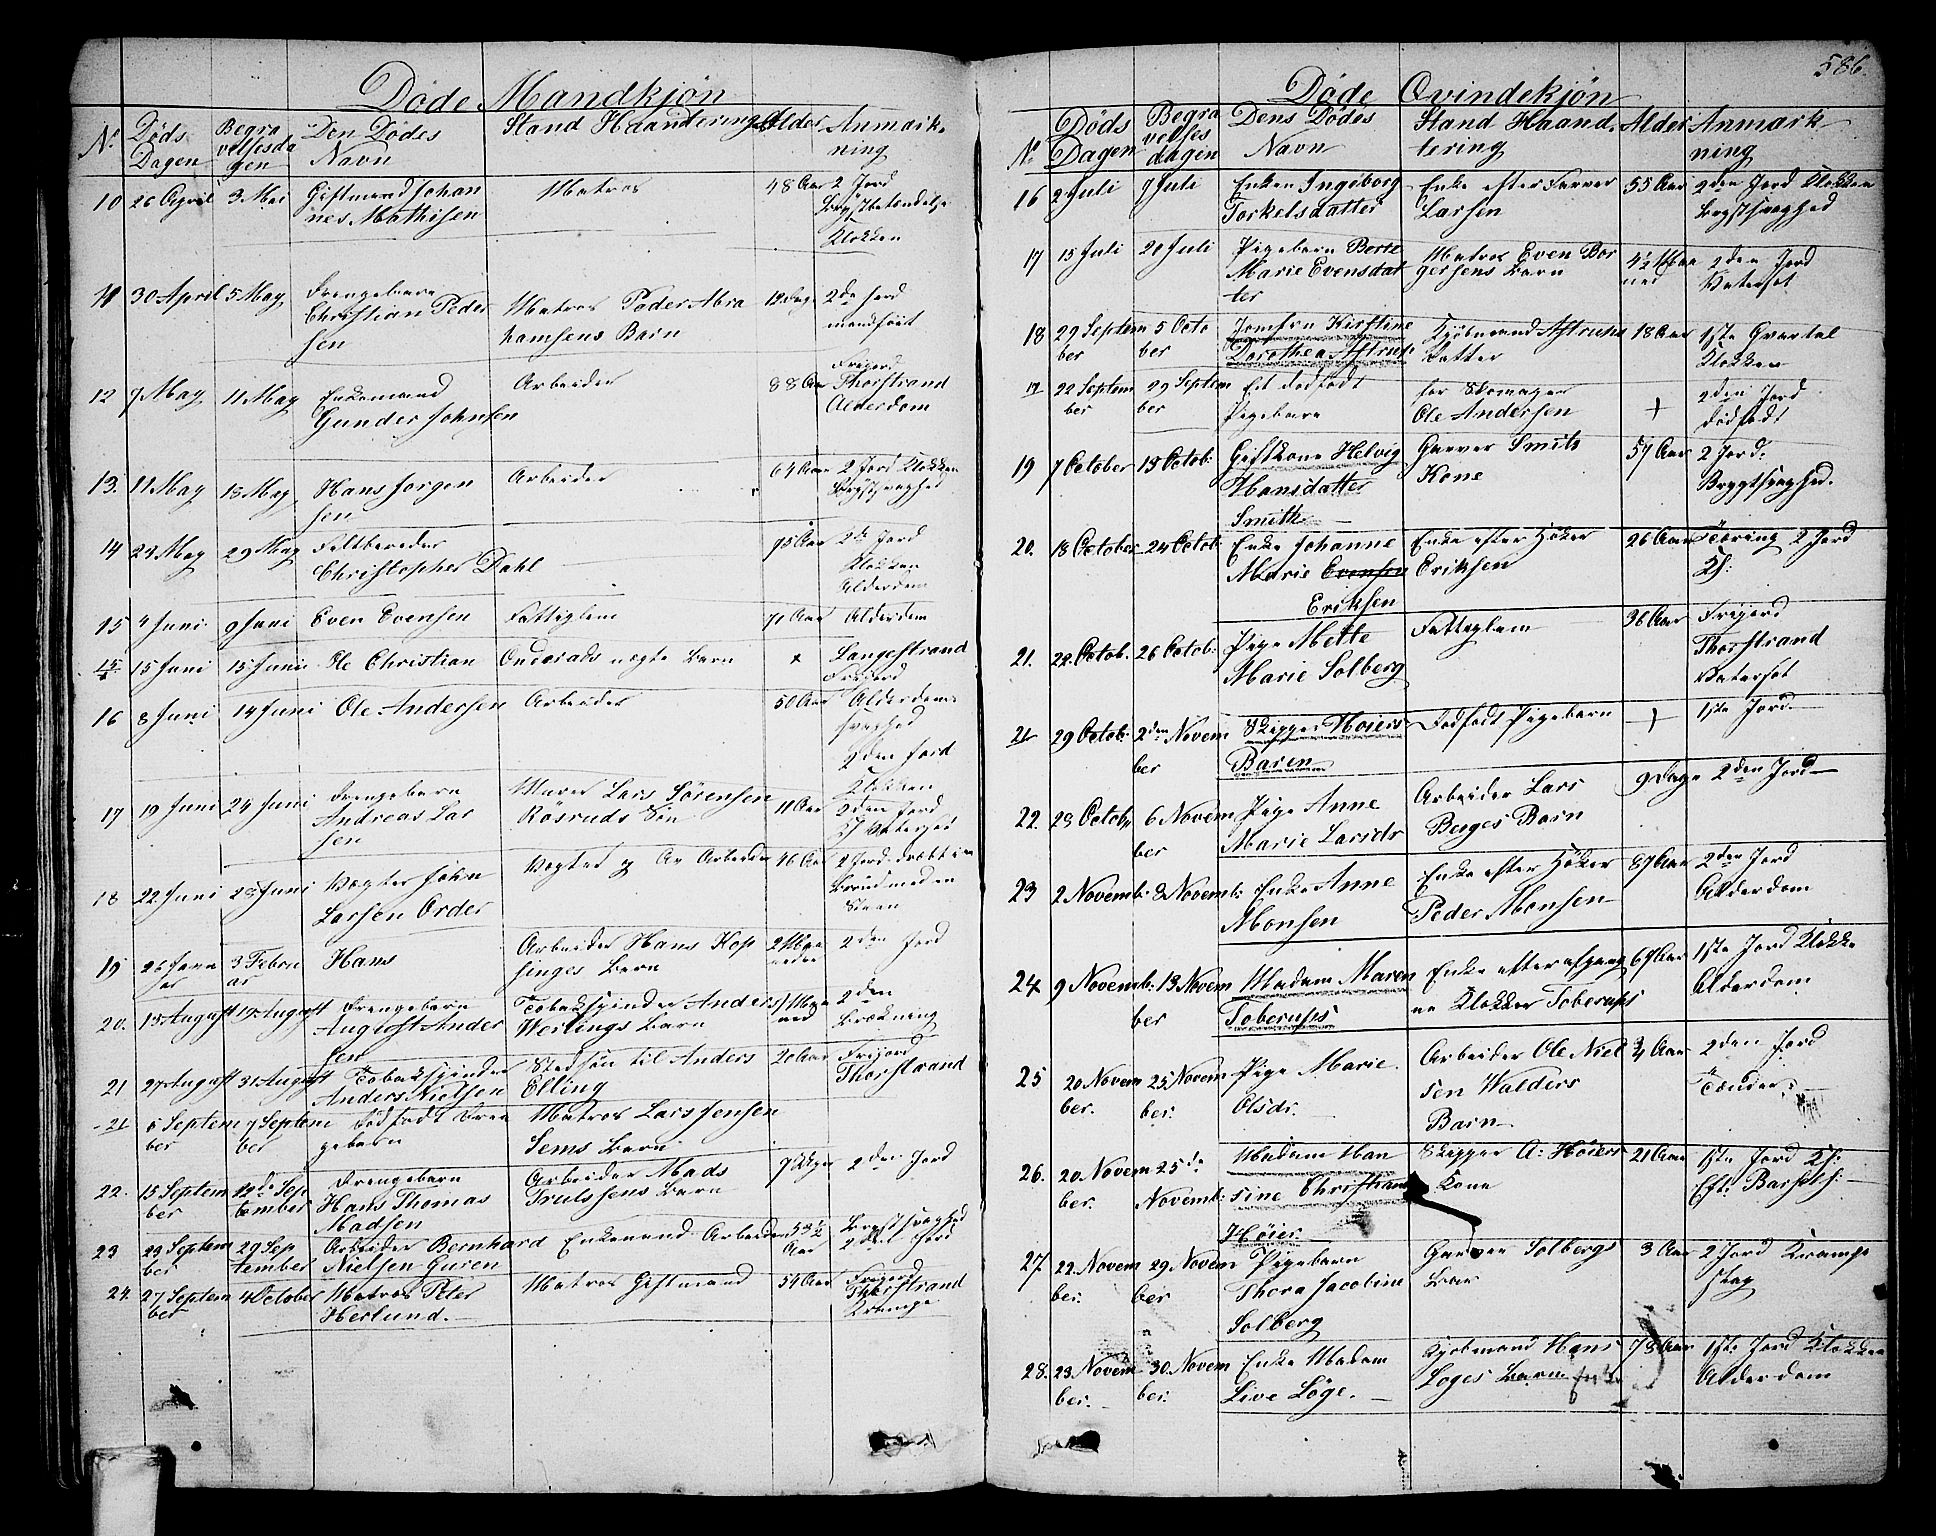 586.
Døde Mandkjön
N.
Döds Dagen
Begravelsesdagen
Den Dödes Navn
Stand Haandtering
Alder
Anmærkning
10 26 April 3 Mai Giftmand Johannes Mathisen Matros 48 Aar 2 Jord Brystbetændelse Klokken
11 30 April 5 May Drengebarn Christian Pedersen Matros Peder Abrahamsens Barn 12 Dage 2de Jord
12 7 May 11 May Enkemand Gunder Johnsen Arbeider 88 Aar Frijord Thorstrand Alderdom
13. 11 May 15 May Hans Jorgensen Arbeider 64 Aar 2 Jord Klokken Brystsvaghed
14 24 May 29 May Feltbereder Christopher Dahl 75 Aar 2de Jord Klokken Alderdom
15 4 Juni 9 Juni Even Evensen Fattiglem 71 Aar Alderdom
15 15 Juni 15 Juni Ole Christian Onderads uægte Barn x Langestrand Frijord
16 8 Juni 14 Juni Ole Andersen Arbeider 50 Aar Alderdomssvaghed 2den Jord Klokken
17 19 Juni 24 Juni Drengebarn Andreas Larsen Murer Lars Sörensen Rösruds Sön 11 Aar 2den Jord Vatersot
18 22 Juni 28 Juni Vægter John Larsen Order Vægter og Arbeider 46 Aar 2 Jord dræbt i en Brud med en Steen
19 26 Januar 3 Februar Hans Arbeider Hans Kopsinges Barn 2 Maaneder 2den Jord
20. 13 August 19 August Drengebarn August Andersen Tobakspinder Anders Werlings Barn 1 Maaned 2den Brækning
21 27 August 31 August Tobakspinder Anders Nielsen Stedsön til Anders Elling 20 Aar Frijord Thorstrand
21 5 September 7 September Dödfödt Drengebarn Matros Lars Jensen Sems Barn
22. 15 September 19de September Drengebarn Hans Thomas Madsen Arbeider Mads Trulssens Barn 7 Uger 2den Jord
23 23 September 29 September Arbeider Bernhard Nielsen Guren Enkemand Arbeider 53½ Aar Brystsvaghed 2den Jord
24. 27 September 4 October Matros Peter Herlund. Matros Giftmand 54 Aar Frijord Thorstrand Krampe
Døde Qvindekjön
N.
Döds Dagen
Begravelsesdagen
Dens Dödes Navn
Stand Haandtering
Alder
Anmærkning
16 2 Juli 7 Juli Enken Ingeborg Torkelsdatter Enke efter Farver Larsen 55 Aar 2den Jord Klokken Brystsvaghed
17 15 Juli 20 Juli Pigebarn Berte Marie Evensdatter Matros Even Borgersens Barn 4½ Maaned 2den Jord Vatersot
18 29 September 5 October Jomfru Kirstine Dorothea Astrup Kjöbmand Astrups Datter 18 Aar 1ste Qvartal Klokken
19 22 September 29 September Et dödfödt Pigebarn for Skomager Ole Andersen + 2den Jord dödfödt
19 7 October 13 Octob: Giftkone Helvig Hansdatter Smith Garver Smiths Kone 57 Aar 2 Jord: Brystsvaghed.
20. 18 October 24 Octob: Enke Johanne Marie Evensen Eriksen Enke efter Höker Eriksen 26 Aar Tæring 2 Jord Kl:
21. 22. Octob. 26 Octob: Pige Mette Marie Solberg Fattiglem 36 Aar Frijord Thorstrand Vatersot
21 29 Octob: 2den November Skipper Hoiers Baren Dödfödt Pigebarn + 1ste Jord
22. 28 Octob. 6 November Pige Anne Marie Larsdr Arbeider Lars Berges Barn 9 Dage 2den Jord
23 2 Novemb: 8 Novemb: Enke Anne Monsen Enke efter Höker Peder Monsen 87 Aar 2den Jord Alderdom
24 9 Novemb: 13 November Madam Maren Toberups Enke efter afgangne Klokker Toberups 67 Aar 1ste Jord Klokke Alderdom
25 20 November. 25 November: Pige Marie Olsdr. Arbeider Ole Nielsen Walders Barn ¾ Aar 2den Jord Tænder
26. 20. November. 25de Novemb: Madam Hansine Christiane Höier Skipper A: Höiers Kone 21 Aar 1ste Jord Kl: Eft: Barsels:
27. 22. November. 29 November Pigebarn Thora Jacobine Solberg Garver Solbergs Bar 3 Aar 2 Jord Krampe Slag
28. 23. November. 30. November: Enke Madam Live Löge. Kjöbmand Hans Loges Barn Enke 78 Aar 1ste Jord Klokken Alderdom